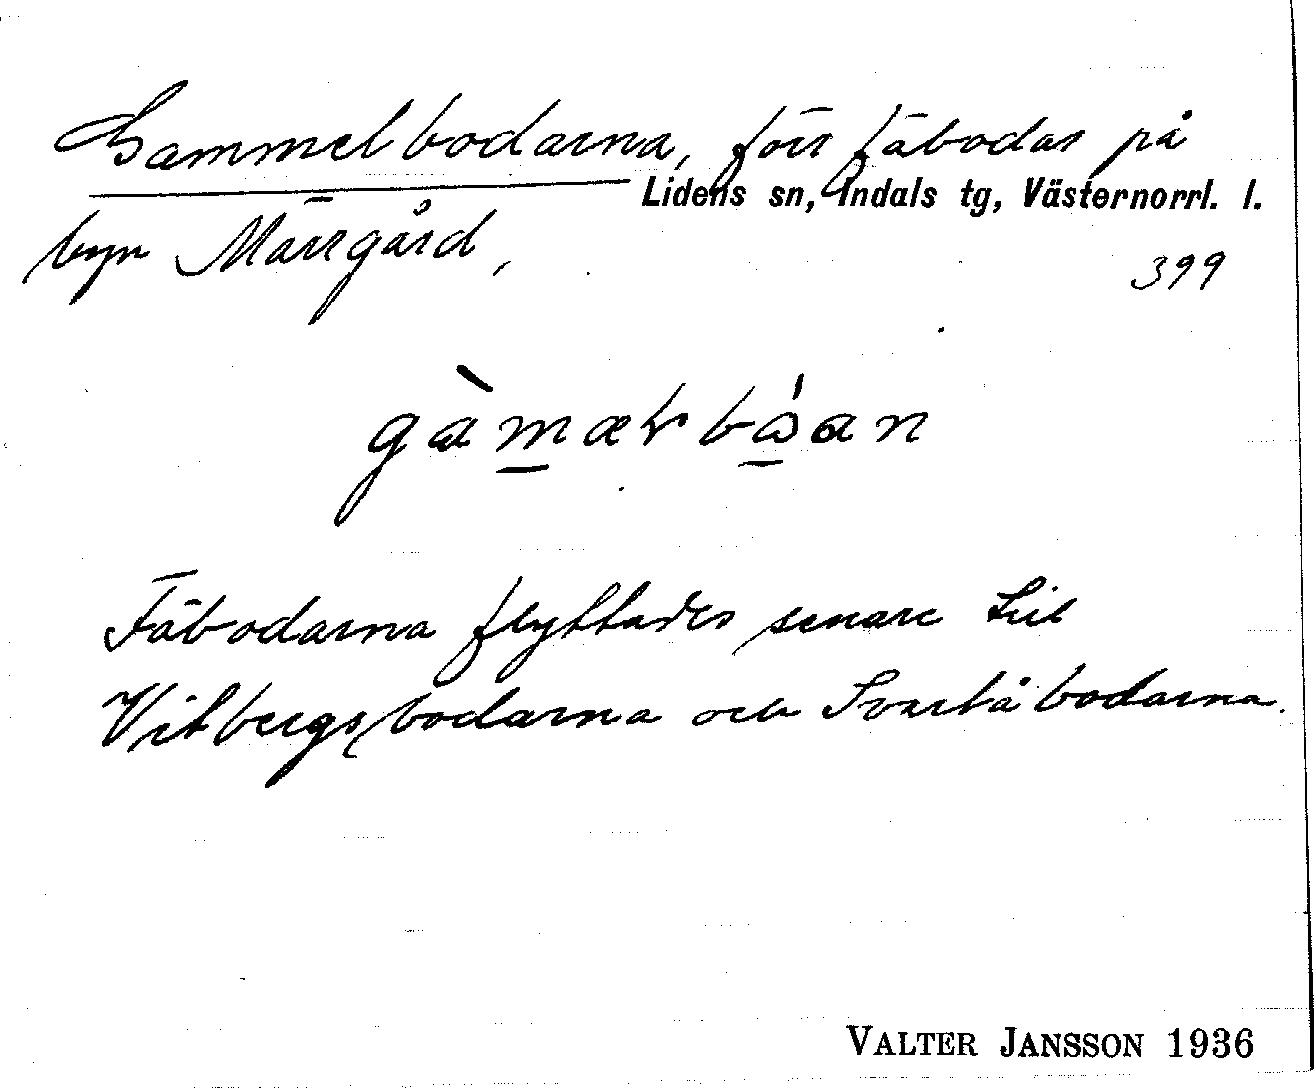 Gammelbodarna, förr fäbodar på
Lidens sn, Indals tg, Västernorrl. l.
byn Märrgård,
399
gàmæɫbɷ́an
Fäbodarna flyttades senare till
Vitbergsbodarna och Svartåbodarna.
VALTER JANSSON 1936